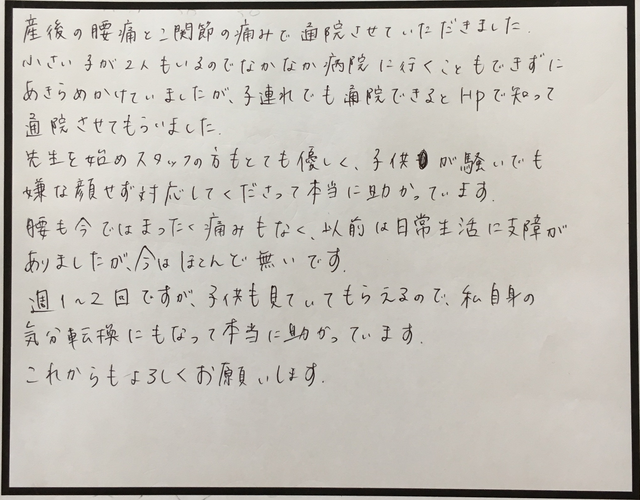 産後の腰痛と二関節の痛みで通院させていただきました.
小さい子が2人もいるのでなかなか病院に行くこともできずに
あきらめかけていましたが、子連れでも通院できるとHPで知って
通院させてもらいました.
先生を始めスタッフの方もとても優しく、子供が騒いでも
嫌な顔せず対応してくださって本当に助かっています.
腰も今ではまったく痛みもなく、以前は日常生活に支障が
ありましたが、今はほとんど無いです.
週1~2回ですが、子供も見ていてもらえるので、私自身の
気分転換にもなって本当に助かっています.
これからもよろしくお願いします.